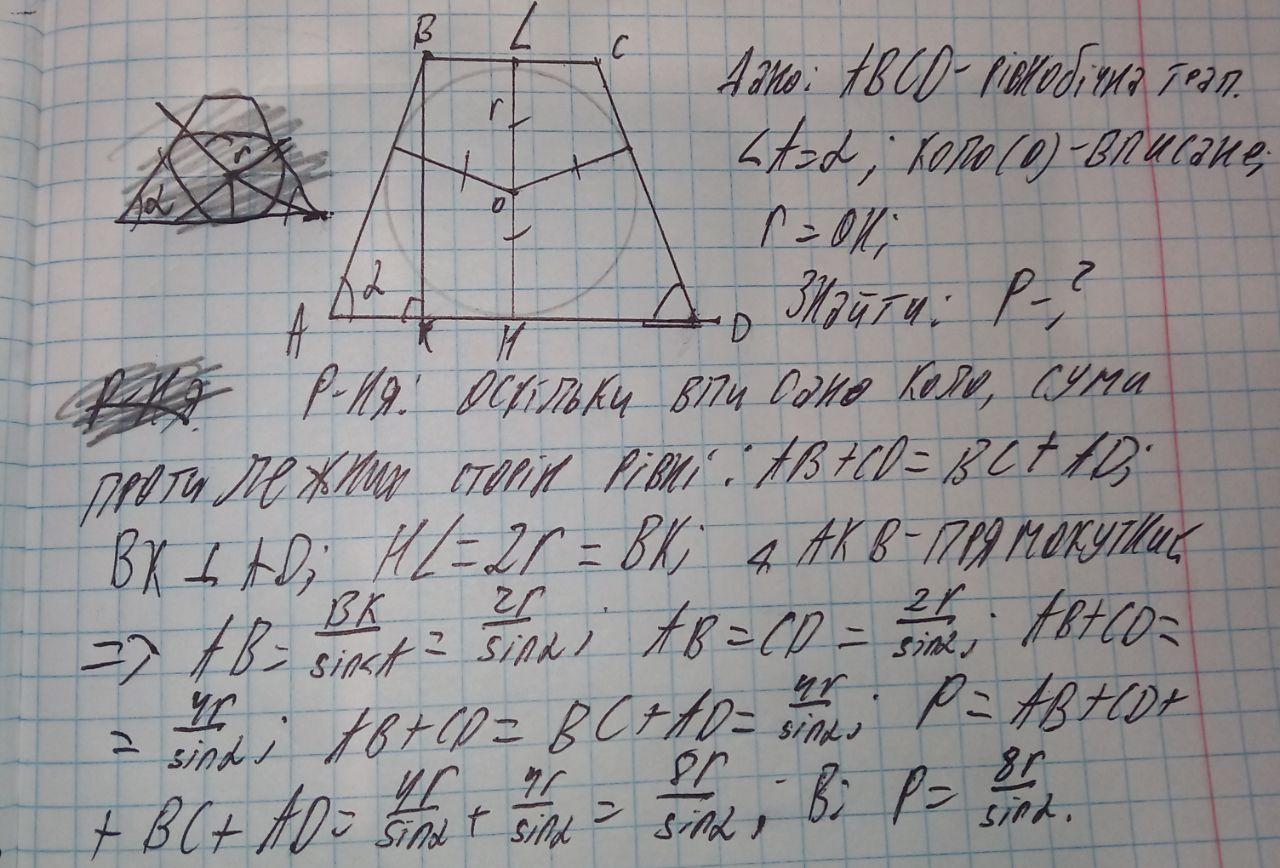 B L C
r
r
O
α
α
A K H D
Дано: ABCD - рівнобічна трап.
∠A=α; коло(O)-вписане;
r = OH;
Знайти: P-?
Р-ня
Р-ня: оскільки вписано коло, суми
протилежних сторін рівні: AB+CD=BC+AD;
BK ⊥ AD; HL=2r=BK; △ AKB-прямокутний
=> AB = BK/sin∠A = 2r/sinα; AB = CD = 2r/sinα; AB+CD=
= 4r/sinα; AB+CD = BC+AD = 4r/sinα; P = AB+CD+
+ BC+AD = 4r/sinα + 4r/sinα = 8r/sinα; В: P = 8r/sinα.